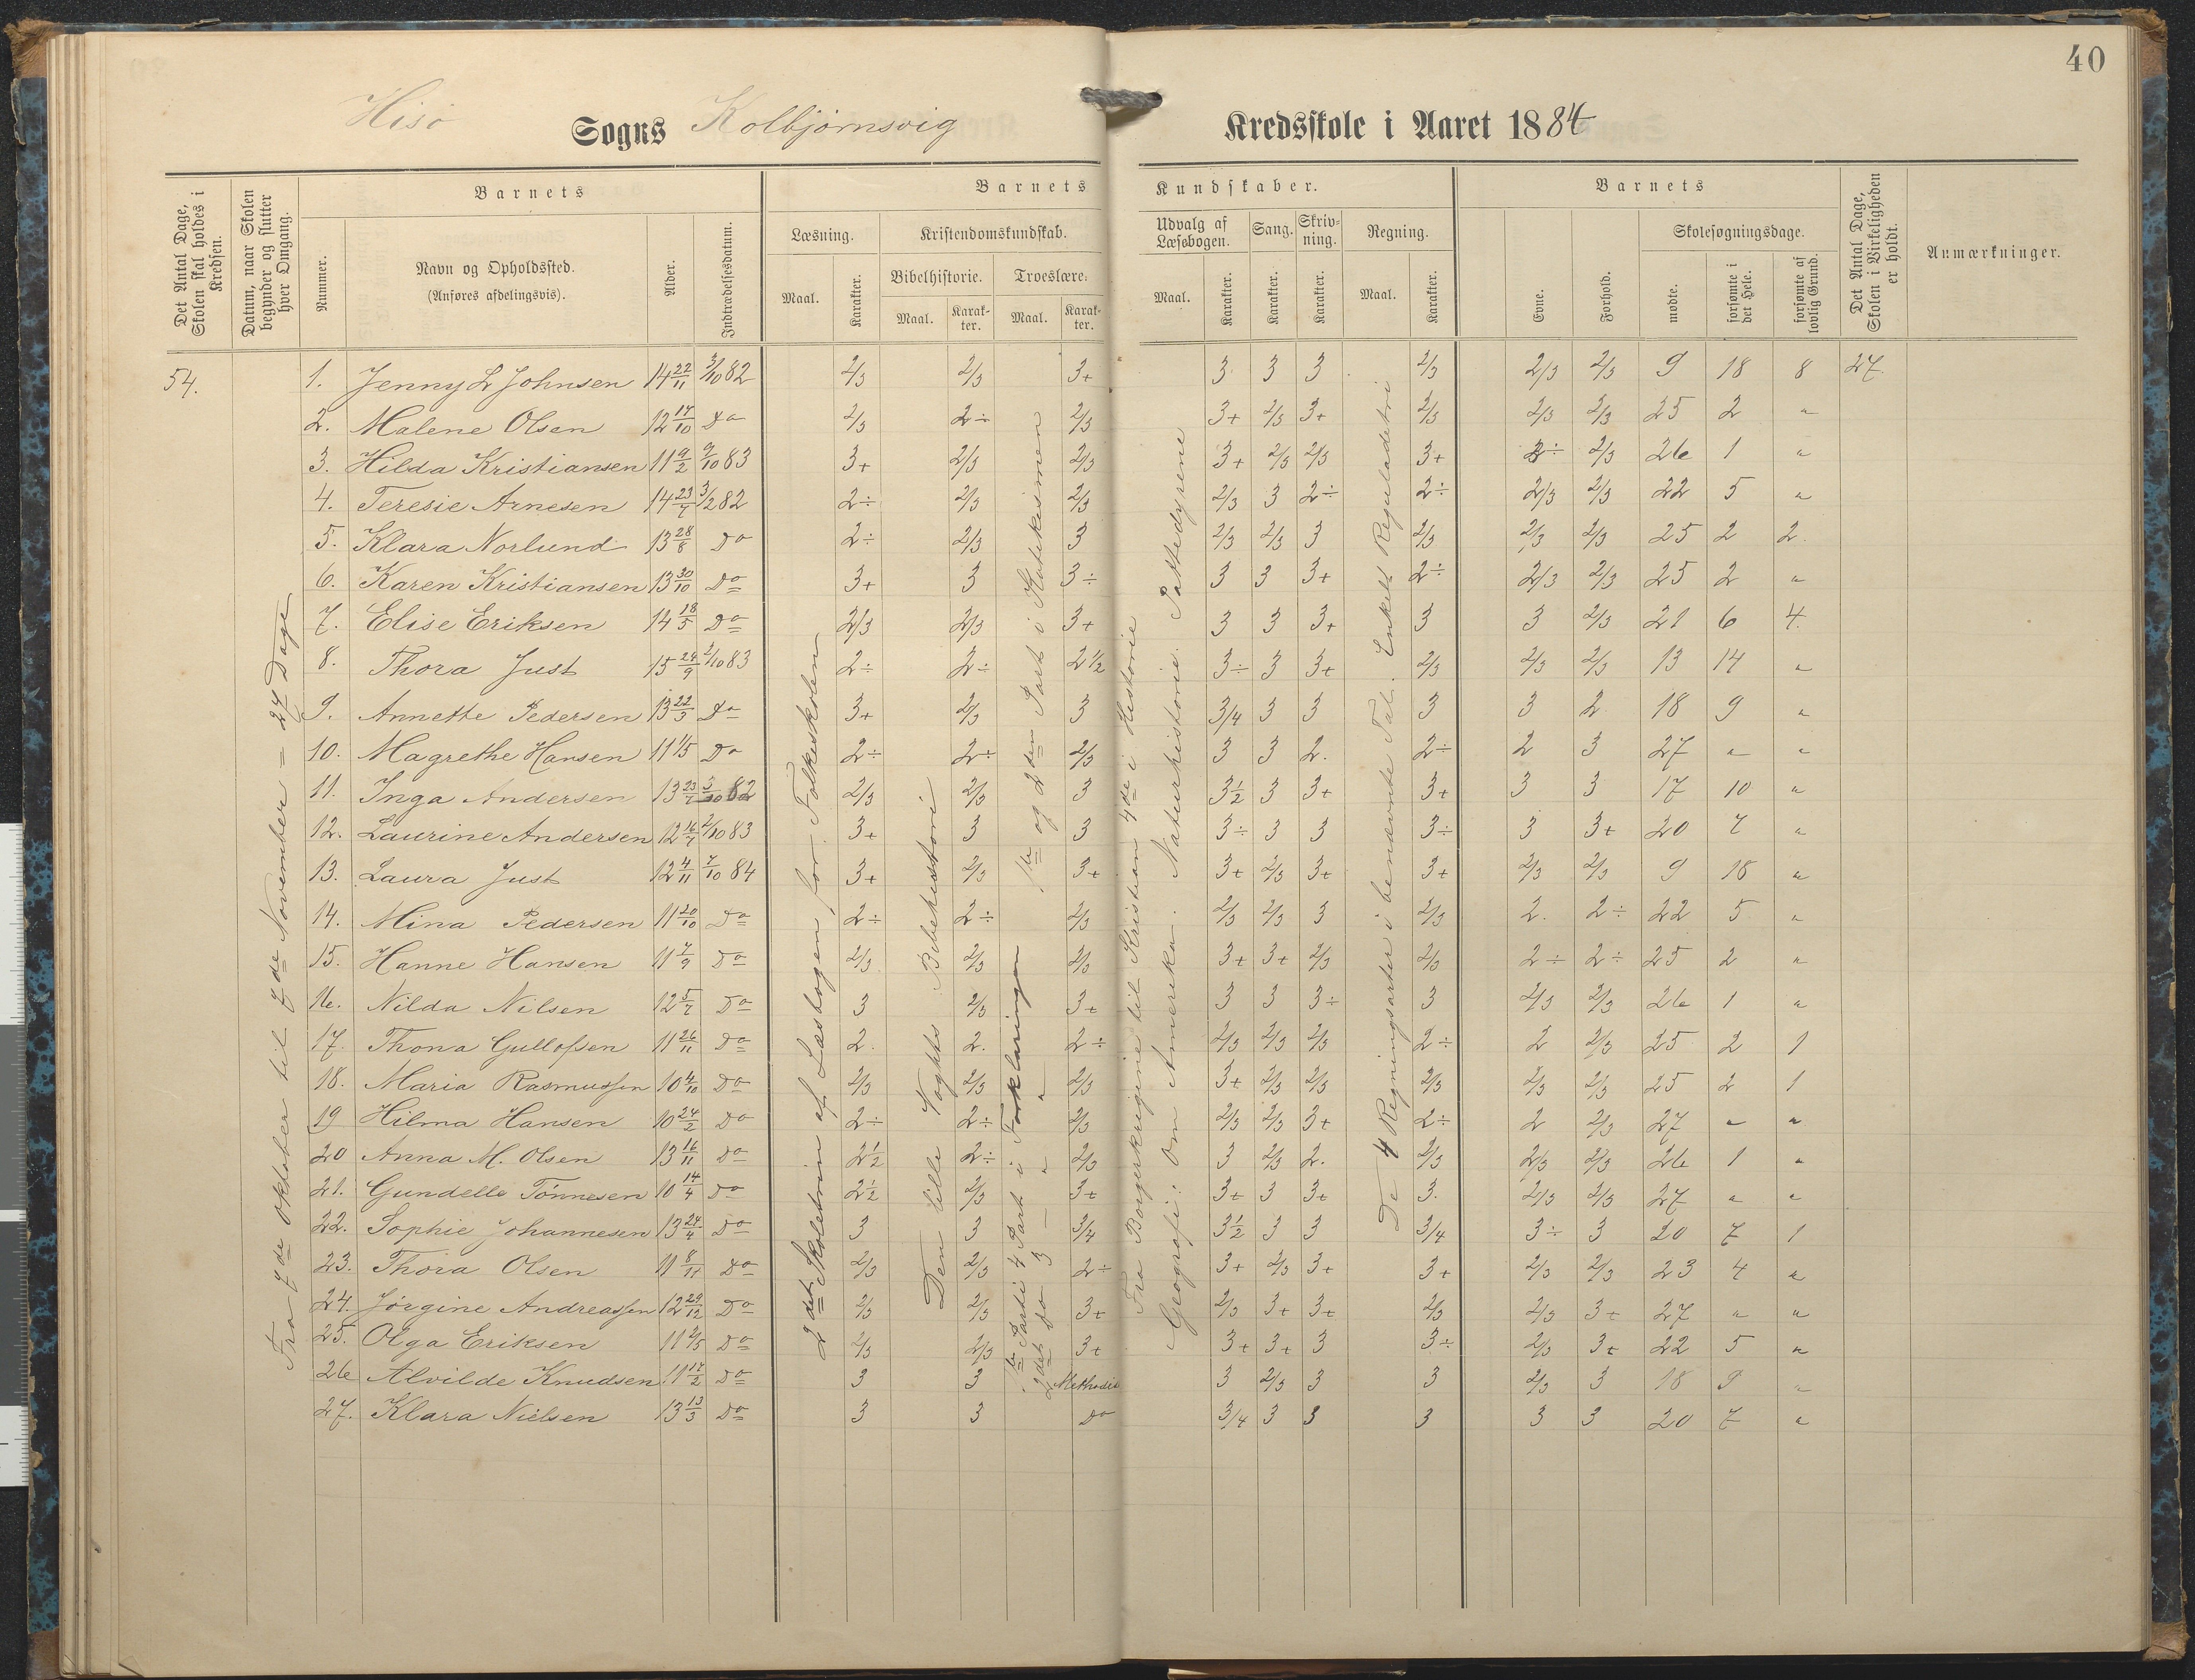 40
Hisö Sogns Kolbjørnsvig Kredsskole i Aaret 1884
Det Antal Dage, Skolen skal holdes i Kredsen.
Datum, naar Skolen begynder og slutter hver Omgang.
Barnets
Nummer.
Navn og Opholdssted.
(Anføres afdelingsvis).
Alder.
Indtrædelsesdatum.
Barnets Kundskaber.
Læsning.
Maal. Karakter.
Kristendomskundskab.
Bibelhistorie. Troeslære.
Maal. Karakter. Maal. Karakter.
Udvalg af Læsebogen.
Maal. Karakter.
Sang.
Karakter.
Skrivning.
Karakter.
Regning.
Maal. Karakter.
Barnets
Evne. Forhold.
Skolesøgningsdage.
mødte. forsømte i det Hele. forsømte af lovlig Grund.
Det Antal Dage, Skolen i Virkeligheden er holdt.
Anmærkninger.
54.
Fra 7de Oktober til 7de November = 27 Dage
2det Skoletrin af Læsebogen for Folkeskolen
Den lille Vogts Bibelhistorie
1ste og 2den Part i Katekismen
1ste Parti 4 Part i Forklaringen
2det Do 3 — " — "
Fra Borgerkrigene til Kristian 4de i Historie
Geografi: Om Amerika. Naturhistorie. Pattedyrene
De 4 Regningsarter i benævnte Tal. Enkelt Reguladetri
1. Jenny L Johnsen 14 22/11 3/10 82 2/3 2/3 3+ 3 3 3 2/3 2/3 2/3 9 18 8 27.
2. Malene Olsen 12 17/10 Do 2/3 2÷ 2/3 3+ 2/3 3+ 2/3 2/3 2/3 25 2 "
3. Hilda Kristiansen 11 9/2 9/10 83 3+ 2/3 2/3 3+ 2/3 2/3 3+ 3÷ 2/3 26 1 "
4. Teresie Arnesen 14 23/7 3/2 82 2÷ 2/3 2/3 2/3 3 2÷ 2÷ 2/3 2/3 22 5 "
5. Klara Norlund 13 28/8 Do 2÷ 2/3 3 2/3 2/3 3 2/3 2/3 2/3 25 2 2.
6. Karen Kristiansen 13 30/10 Do 3+ 3 3÷ 3 3 3+ 2÷ 2/3 2/3 25 2 "
7. Elise Eriksen 14 18/5 Do 2/3 2/3 3+ 3 3 3+ 3 3 2/3 21 6 4.
8. Thora Just 15 24/9 2/10 83 2÷ 2÷ 2 1/2 3÷ 3 3+ 2/3 2/3 2/3 13 14 "
9. Annette Pedersen 13 22/3 Do 3+ 2/3 3 3/4 3 3 3 3 2. 18 9 "
10. Magrethe Hansen 11 1/5 Do 2÷ 2÷ 2/3 3 3 2. 2÷ 2 3 27 " "
11. Inga Andersen 13 23/7 5/10 82 2/3 2/3 3 3 1/2 3 3+ 3+ 3 3 17 10 "
12. Laurine Andersen 12 16/7 2/10 83 3+ 3 3 3÷ 3 3 3÷ 3 3+ 20 7 "
13. Laura Just 12 4/11 7/10 84 3+ 2/3 3+ 3+ 2/3 3+ 3+ 2/3 2/3 9 18 "
14. Mina Pedersen 11 20/10 Do 2÷ 2÷ 2/3 2/3 2/3 3 2/3 2. 2÷ 22 5 "
15. Hanne Hansen 11 7/9 Do 2/3 2/3 2/3 3+ 3+ 2/3 2/3 2÷ 2÷ 25 2 "
16. Nilda Nilsen 12 5/7 Do 3 2/3 3+ 3 3 3÷ 3 2/3 2/3 26 1 "
17. Thona Gullofsen 11 26/11 Do 2. 2. 2÷ 2/3 2/3 2/3 2÷ 2 2/3 25 2 1
18. Maria Rasmussen 10 4/10 Do 2/3 2/3 2/3 3+ 2/3 2/3 2/3 2/3 2/3 25 2 1
19 Hilma Hansen 10 24/2 Do 2÷ 2÷ 2/3 2/3 2/3 3+ 2÷ 2 2/3 27 " "
20 Anna M. Olsen 13 16/11 Do 2 1/2 2÷ 2/3 3 2/3 2. 2/3 2/3 2/3 26 1 "
21. Gundelle Tönnesen 10 14/4 Do 2 1/2 2/3 3+ 3+ 3 3+ 3. 2/3 2/3 27 " "
22. Sophie Johannesen 13 24/4 Do 3 3 3/4 3 1/2 3 3 3/4 3÷ 3 20 7 1
23. Thora Olsen 11 8/11 Do 2/3 2/3 2÷ 3+ 2/3 3+ 3+ 2/3 2/3 23 4 "
24. Jörgine Andreassen 12 29/12 Do 2/3 2/3 3+ 2/3 3+ 3+ 2/3 2/3 3+ 27 " "
25. Olga Eriksen 11 2/5 Do 2/3 2/3 3+ 3+ 3+ 3 3÷ 2/3 3+ 22 5 "
26 Alvilde Knudsen 11 17/2 Do 3 3 Methodist 3 2/3 3 3 2/3 3 18 9 "
27. Klara Nielsen 13 13/3 Do 3 3 Do 3/4 3 3 3 3 3 20 7 "